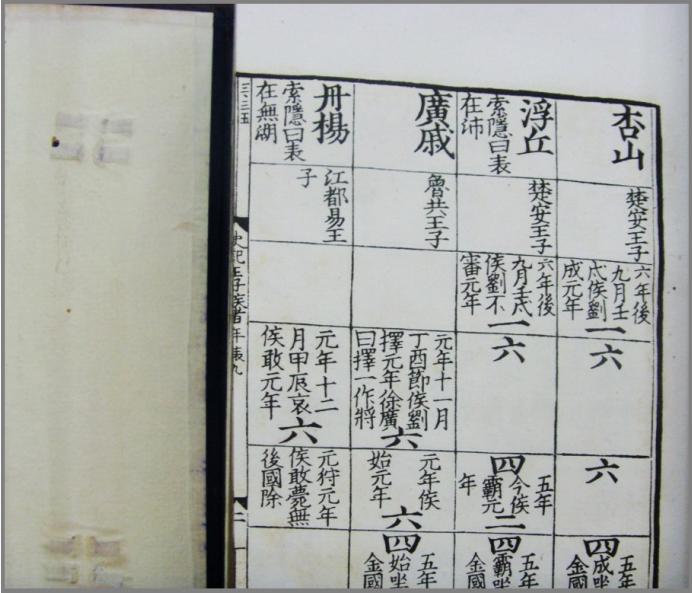 杏山
楚安王子
六年後
九月壬
戌侯劉
成元年
一
六
六
四
五年
成坐
金國
浮丘
索隱曰表
在沛
楚安王子
六年後
九月壬戌
侯劉不
審元年
一
六
四
五年
今侯
霸元
年
二
四
五年
霸坐
金國
廣戚
魯共王子
元年十一月
丁酉節侯劉
擇元年徐廣
曰擇一作將
六
元年侯
始元年
六
四
五年
始坐
金國
丹楊
索隱曰表
在無湖
江都易王
子
元年十二
月甲辰哀
侯敢元年
六
元狩元年
侯敢薨無
後國除
三・三五
史記王子侯者年表九
二